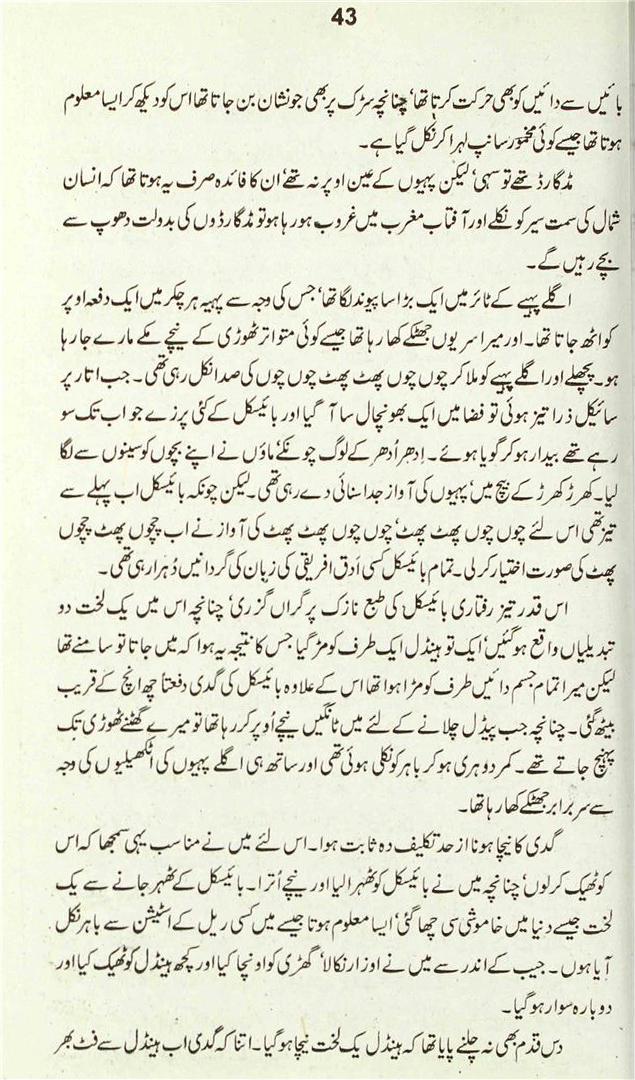 43
بائیں سے دائیں کو بھی حرکت کرتا تھا‘ چنانچہ سڑک پر بھی جو نشان بن جاتا تھا اس کو دیکھ کر ایسا معلوم
ہوتا تھا جیسے کوئی مخمور سانپ لہرا کر نکل گیا ہے۔
مڈگارڈ تھے تو سہی‘ لیکن پہیوں کے عین اوپر نہ تھے‘ ان کا فائدہ صرف یہ ہوتا تھا کہ انسان
شمال کی سمت سیر کو نکلے اور آفتاب مغرب میں غروب ہو رہا ہو تو مڈگارڈوں کی بدولت دھوپ سے
بچے رہیں گے۔
اگلے پہیے کے ٹائر میں ایک بڑا سا پیوند لگا تھا‘ جس کی وجہ سے پہیہ ہر چکر میں ایک دفعہ اوپر
کو اٹھ جاتا تھا۔ اور میرا سر یوں جھٹکے کھا رہا تھا جیسے کوئی متواتر ٹھوڑی کے نیچے مکے مارے جا رہا
ہو۔ پچھلے اور اگلے پہیے کو ملا کر چوں چوں پھٹ پھٹ چوں چوں کی صدا نکل رہی تھی۔ جب اتار پر
سائیکل ذرا تیز ہوئی تو فضا میں ایک بھونچال سا آ گیا اور بائیسکل کے کئی پرزے جو اب تک سو
رہے تھے بیدار ہو کر گویا ہوئے۔ اِدھر اُدھر کے لوگ چونکے‘ ماؤں نے اپنے بچوں کو سینوں سے لگا
لیا۔ کھڑ کھڑ کے بیچ میں‘ پہیوں کی آواز جدا سنائی دے رہی تھی۔ لیکن چونکہ بائیسکل اب پہلے سے
تیز تھی اس لئے چوں چوں پھٹ پھٹ‘ چوں چوں پھٹ پھٹ کی آواز نے اب چچوں پھٹ چچوں
پھٹ کی صورت اختیار کر لی۔ تمام بائیسکل کسی اَدق افریقی کی زبان کی گردانیں دُہرا رہی تھی۔
اس قدر تیز رفتاری بائیسکل کی طبع نازک پر گراں گزری‘ چنانچہ اس میں یک لخت دو
تبدیلیاں واقع ہو گئیں‘ ایک تو ہینڈل ایک طرف کو مڑ گیا جس کا نتیجہ یہ ہوا کہ میں جاتا تو سامنے تھا
لیکن میرا تمام جسم دائیں طرف کو مڑا ہوا تھا اس کے علاوہ بائیسکل کی گدی دفعتاً چھ انچ کے قریب
بیٹھ گئی۔ چنانچہ جب پیڈل چلانے کے لئے میں ٹانگیں نیچے اُوپر کر رہا تھا تو میرے گھٹنے ٹھوڑی تک
پہنچ جاتے تھے۔ کمر دوہری ہو کر باہر کو نکلی ہوئی تھی اور ساتھ ہی اگلے پہیوں کی اٹکھیلیوں کی وجہ
سے سر برابر جھٹکے کھا رہا تھا۔
گدی کا نیچا ہونا از حد تکلیف دہ ثابت ہوا۔ اس لئے میں نے مناسب یہی سمجھا کہ اس
کو ٹھیک کر لوں‘ چنانچہ میں نے بائیسکل کو ٹھہرا لیا اور نیچے اُترا۔ بائیسکل کے ٹھہر جانے سے یک
لخت جیسے دنیا میں خاموشی سی چھا گئی‘ ایسا معلوم ہوتا جیسے میں کسی ریل کے اسٹیشن سے باہر نکل
آیا ہوں۔ جیب کے اندر سے میں نے اوزار نکالا‘ گھڑی کو اونچا کیا اور کچھ ہینڈل کو ٹھیک کیا اور
دوبارہ سوار ہو گیا۔
دس قدم بھی نہ چلنے پایا تھا کہ ہینڈل یک لخت نیچا ہو گیا۔ اتنا کہ گدی اب ہینڈل سے فٹ بھر